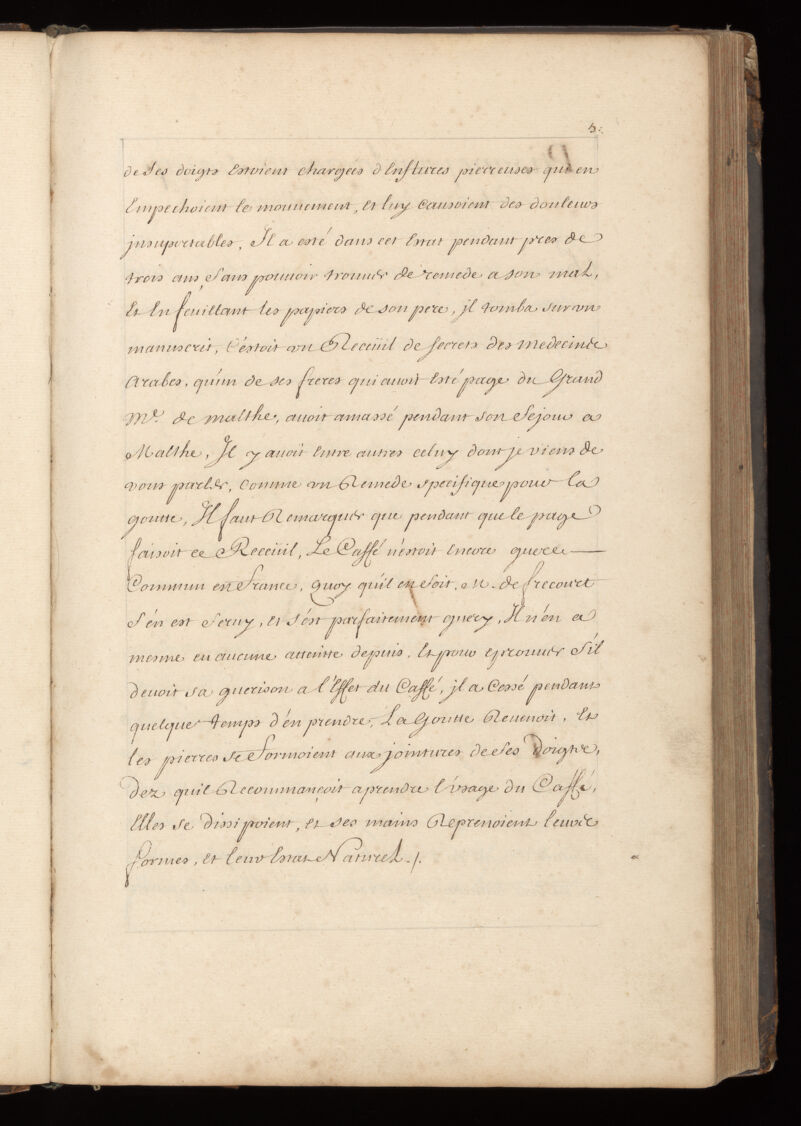 5.
de ses doigts Estoient chargees d'Enflures pierreuses qui en
Empechoient le mouuement, et luy causoient des douleurs
jnsuportables, Il a esté dans cet Estat pendant pres de
trois ans, Sans pouuoir trouuer de remede a son mal,
Et En feuillant les papiers de son pere, jl tomba sur vn
manuscrit, C'éstoit vn Receüil de secrets des medecins
Arabes, qu'un de ses freres qui auoit Esté page du Grand
Me. de malthe, auoit amassé pendant son Sejour a
Malthe, Jl y auoit Entre autres celuy dont je viens de
vous parler, Comme vn Remede specifique pour la
goutte, Jl faut Remarquer que pendant que le page
faisoit ce Receüil, Le Caffé n'estoit Encore guere
Commun en France, quoy qu'il en Soit, M. de frecourt
S'én est Seruy, et s'ést parfaitement guery, Il n'én a
mesme eu aucune atteinte depuis, Et pour éprouuer S'il
deuoit sa guerison a l'Effet du Caffé, jl a Cessé pendant
quelque temps d'én prendre, La Goutte Reuenoit, Et
les pierres se Formoient aux jointures de Ses Doigts,
Dez qu'il Recommançoit a prendre l'vsage du Caffé,
Elles se dissipoient, et ses mains Reprenoient leurs
formes, et leur Estat Naturel./.